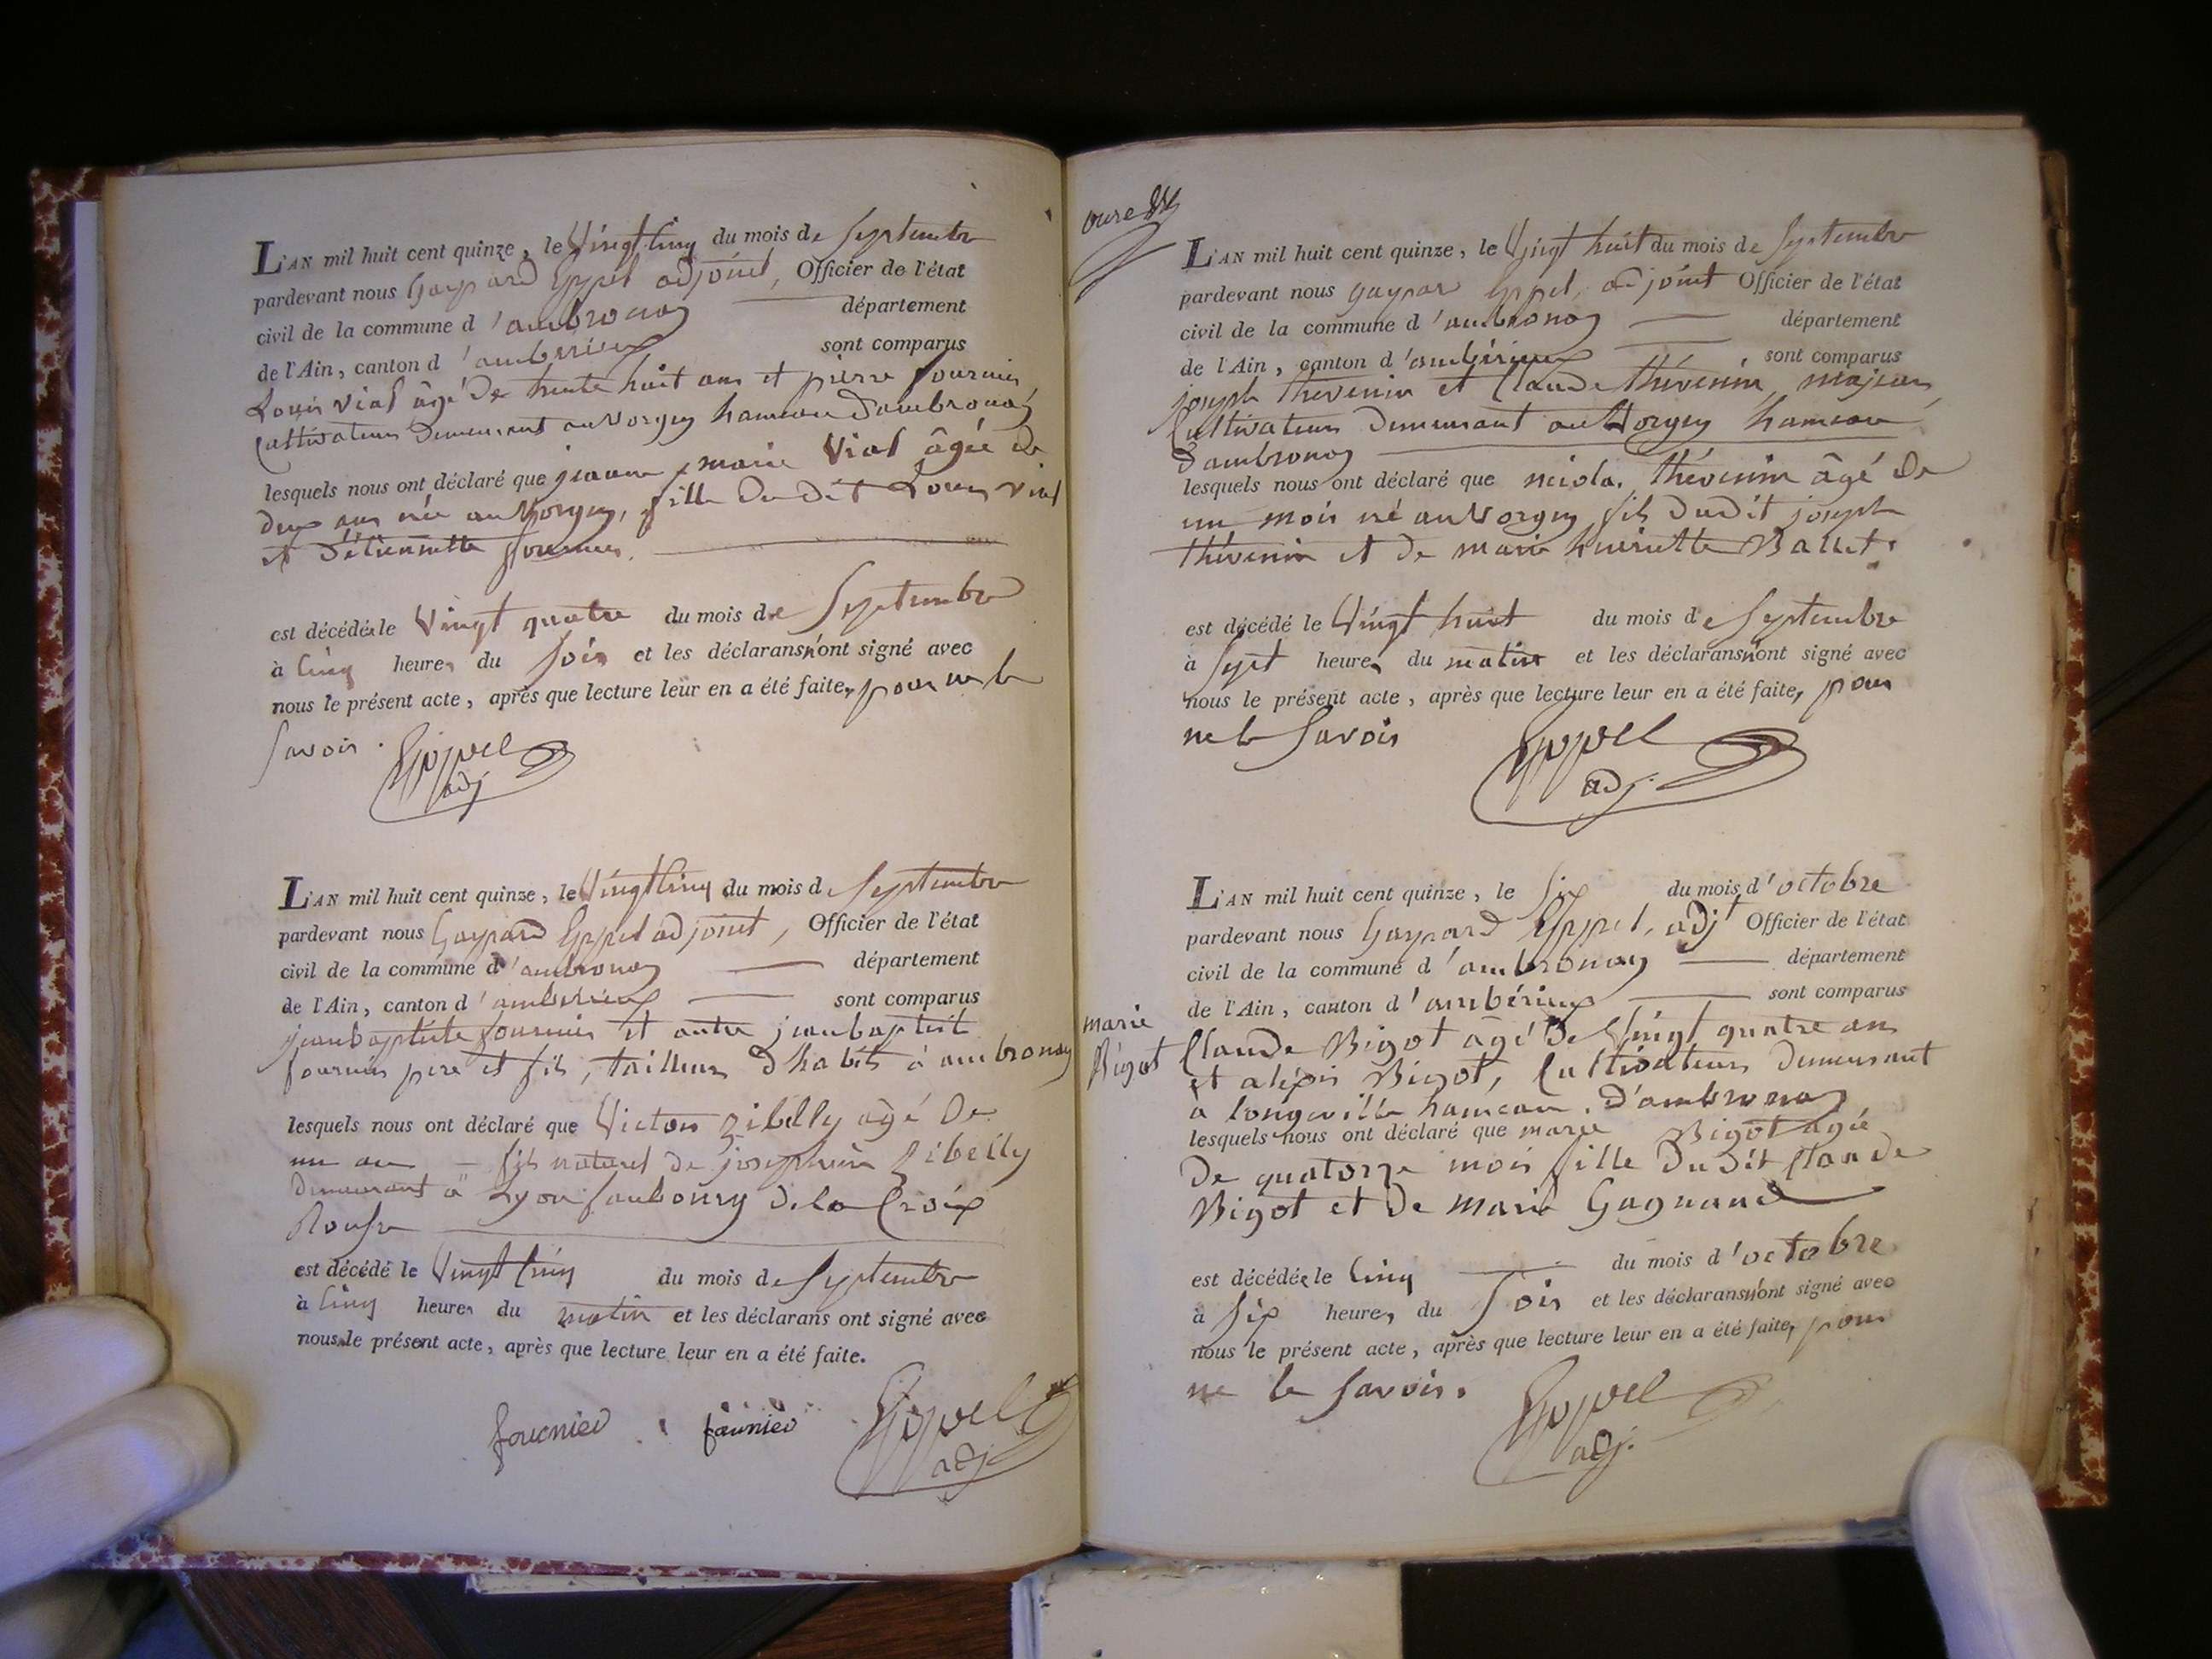 L'AN mil huit cent quinze, le Vingt Cinq du mois de Septembre
pardevant nous Gaspard Eppel adjoint, Officier de l'état
civil de la commune d'ambronay département
de l'Ain, canton d'ambérieux sont comparus
Louis Vial âgé de trente huit ans et pierre fournier
Cultivateurs demeurant au Vorgey hameau d'ambronay
lesquels nous ont déclaré que jeanne marie Vial âgée de
deux ans née au Vorgey, fille dudit Louis Vial
et d'étiennette fournier.
est décédée le Vingt quatre du mois de Septembre
à Cinq heures du Soir et les déclarans n'ont signé avec
nous le présent acte, après que lecture leur en a été faite, pour ne le
Savoir.
Eppel
adj
L'AN mil huit cent quinze, le Vingt Cinq du mois de Septembre
pardevant nous Gaspard Eppel adjoint, Officier de l'état
civil de la commune d'ambronay département
de l'Ain, canton d'ambérieux sont comparus
jeanbaptiste fournier et autre jeanbaptiste
fournier pere et fils, tailleurs d'habits à ambronay
lesquels nous ont déclaré que Victor Zibelly agé de
un an fils naturel de josephine Zibelly
demeurant à Lyon faubourg de la Croix
Rousse
est décédé le Vingt Cinq du mois de Septembre
à Cinq heures du matin et les déclarans ont signé avec
nous le présent acte, après que lecture leur en a été faite.
fournier fournier Eppel
adj.
L'AN mil huit cent quinze, le Vingt huit du mois de Septembre
pardevant nous gaspar Eppel, adjoint Officier de l'état
civil de la commune d'ambronay département
de l'Ain, canton d'ambérieux sont comparus
joseph thevenin et Claude thévenin, majeurs,
Cultivateurs demeurant au Vorgey hameau
d'ambronay
lesquels nous ont déclaré que nicola. thévenin âgé de
un mois né au Vorgey fils dudit joseph
thévenin et de marie henriette Ballet.
est décédé le Vingt huit du mois de Septembre
à Sept heures du matin et les déclarans n'ont signé avec
nous le présent acte, après que lecture leur en a été faite, pour
ne le Savoir
Eppel
adj.
L'AN mil huit cent quinze, le Six du mois d'octobre
pardevant nous Gaspard Eppel, adjt Officier de l'état
civil de la commune d'ambronay département
de l'Ain, canton d'ambérieux sont comparus
marie
Bigot
Claude Bigot âgé de Vingt quatre ans
et alexis Bigot, Cultivateurs demeurant
à longeville hameau d'ambronay
lesquels nous ont déclaré que marie Bigot agée
de quatorze mois fille dudit Claude
Bigot et de marie Gagnaud
est décédée le Cinq du mois d'octobre
à Six heures du Soir et les déclarans n'ont signé avec
nous le présent acte, après que lecture leur en a été faite, pour
ne le Savoir.
Eppel
adj.